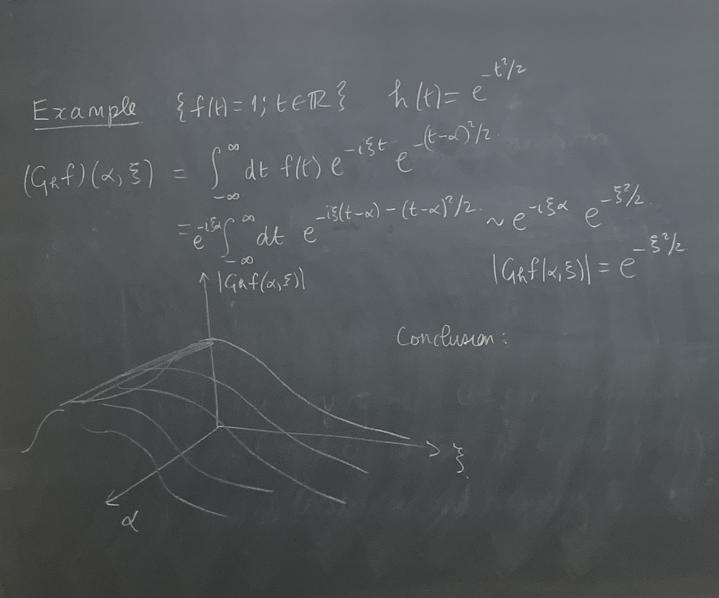 Example {f(t) = 1; t ∈ ℝ} h(t) = e^{-t²/2}
(G_h f)(α, ξ) = ∫_{-∞}^{∞} dt f(t) e^{-iξt} e^{-(t-α)²/2}
= e^{-iξα} ∫_{-∞}^{∞} dt e^{-iξ(t-α) - (t-α)²/2} ~ e^{-iξα} e^{-ξ²/2}
|G_h f(α, ξ)| = e^{-ξ²/2}
|G_h f(α, ξ)|
Conclusion:
ξ
α